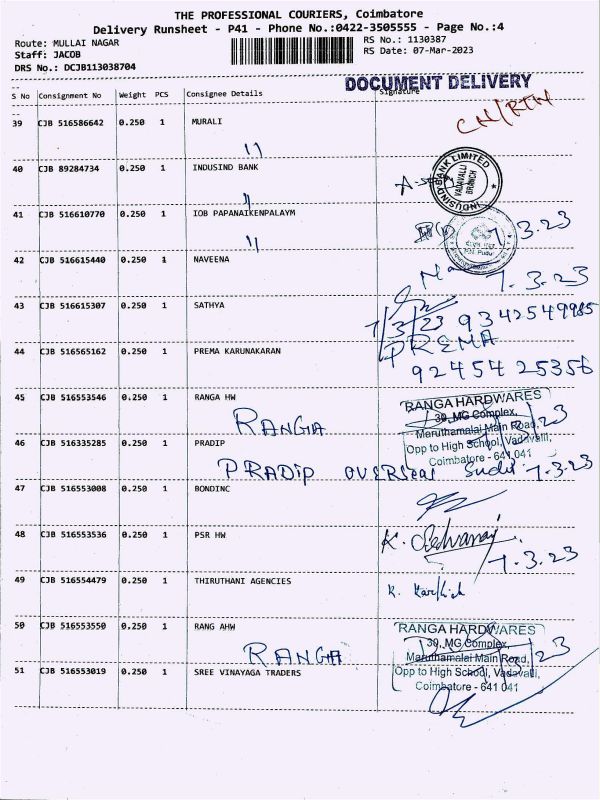 THE PROFESSIONAL COURIERS, Coimbatore
Delivery Runsheet - P41 - Phone No.:0422-3505555 - Page No.:4
Route: MULLAI NAGAR RS No.: 1130387
Staff: JACOB RS Date: 07-Mar-2023
DRS No.: DCJB113038704
DOCUMENT DELIVERY
S No Consignment No Weight PCS Consignee Details Signature
39 CJB 516586642 0.250 1 MURALI
40 CJB 89284734 0.250 1 INDUSIND BANK
INDUSIND BANK LIMITED
VADAVALLI BRANCH
41 CJB 516610770 0.250 1 IOB PAPANAIKENPALAYM
7.3.23
42 CJB 516615440 0.250 1 NAVEENA
7.3.23
43 CJB 516615307 0.250 1 SATHYA
7/3/23 9342549985
44 CJB 516565162 0.250 1 PREMA KARUNAKARAN
PREMA
9245425356
45 CJB 516553546 0.250 1 RANGA HW
RANGA
RANGA HARDWARES
39, MG Complex,
Maruthamalai Main Road,
Opp to High School, Vadavalli,
Coimbatore - 641 041
46 CJB 516335285 0.250 1 PRADIP
PRADIP OVERSEAS 7.3.23
47 CJB 516553008 0.250 1 BONDINC
48 CJB 516553536 0.250 1 PSR HW
K. 7.3.23
49 CJB 516554479 0.250 1 THIRUTHANI AGENCIES
K.
50 CJB 516553550 0.250 1 RANG AHW
RANGA
RANGA HARDWARES
39, MG Complex,
Maruthamalai Main Road,
Opp to High School, Vadavalli,
Coimbatore - 641 041
51 CJB 516553019 0.250 1 SREE VINAYAGA TRADERS